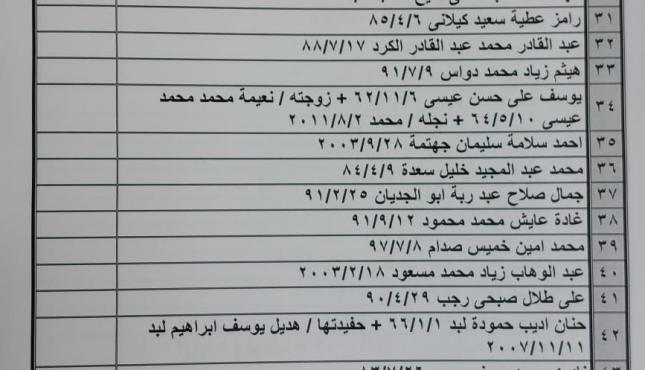 ٣١ رامز عطية سعيد كيلانى ٨٥/٤/٦
٣٢ عبد القادر محمد عبد القادر الكرد ٨٨/٧/١٧
٣٣ هيثم زياد محمد دواس ٩١/٧/٩
٣٤ يوسف على حسن عيسى ٦٢/١١/٦ + زوجته / نعيمة محمد محمد
عيسى ٦٤/٥/١٠ + نجله / محمد ٢٠١١/٨/٢
٣٥ احمد سلامة سليمان جهتمة ٢٠٠٣/٩/٢٨
٣٦ محمد عبد المجيد خليل سعدة ٨٤/٤/٩
٣٧ جمال صلاح عبد ربة ابو الجديان ٩١/٢/٢٥
٣٨ غادة عايش محمد محمود ٩١/٩/١٢
٣٩ محمد امين خميس صدام ٩٧/٧/٨
٤٠ عبد الوهاب زياد محمد مسعود ٢٠٠٣/٢/١٨
٤١ على طلال صبحى رجب ٩٠/٤/٢٩
٤٢ حنان اديب حمودة لبد ٦٦/١/١ + حفيدتها / هديل يوسف ابراهيم لبد
٢٠٠٧/١١/١١